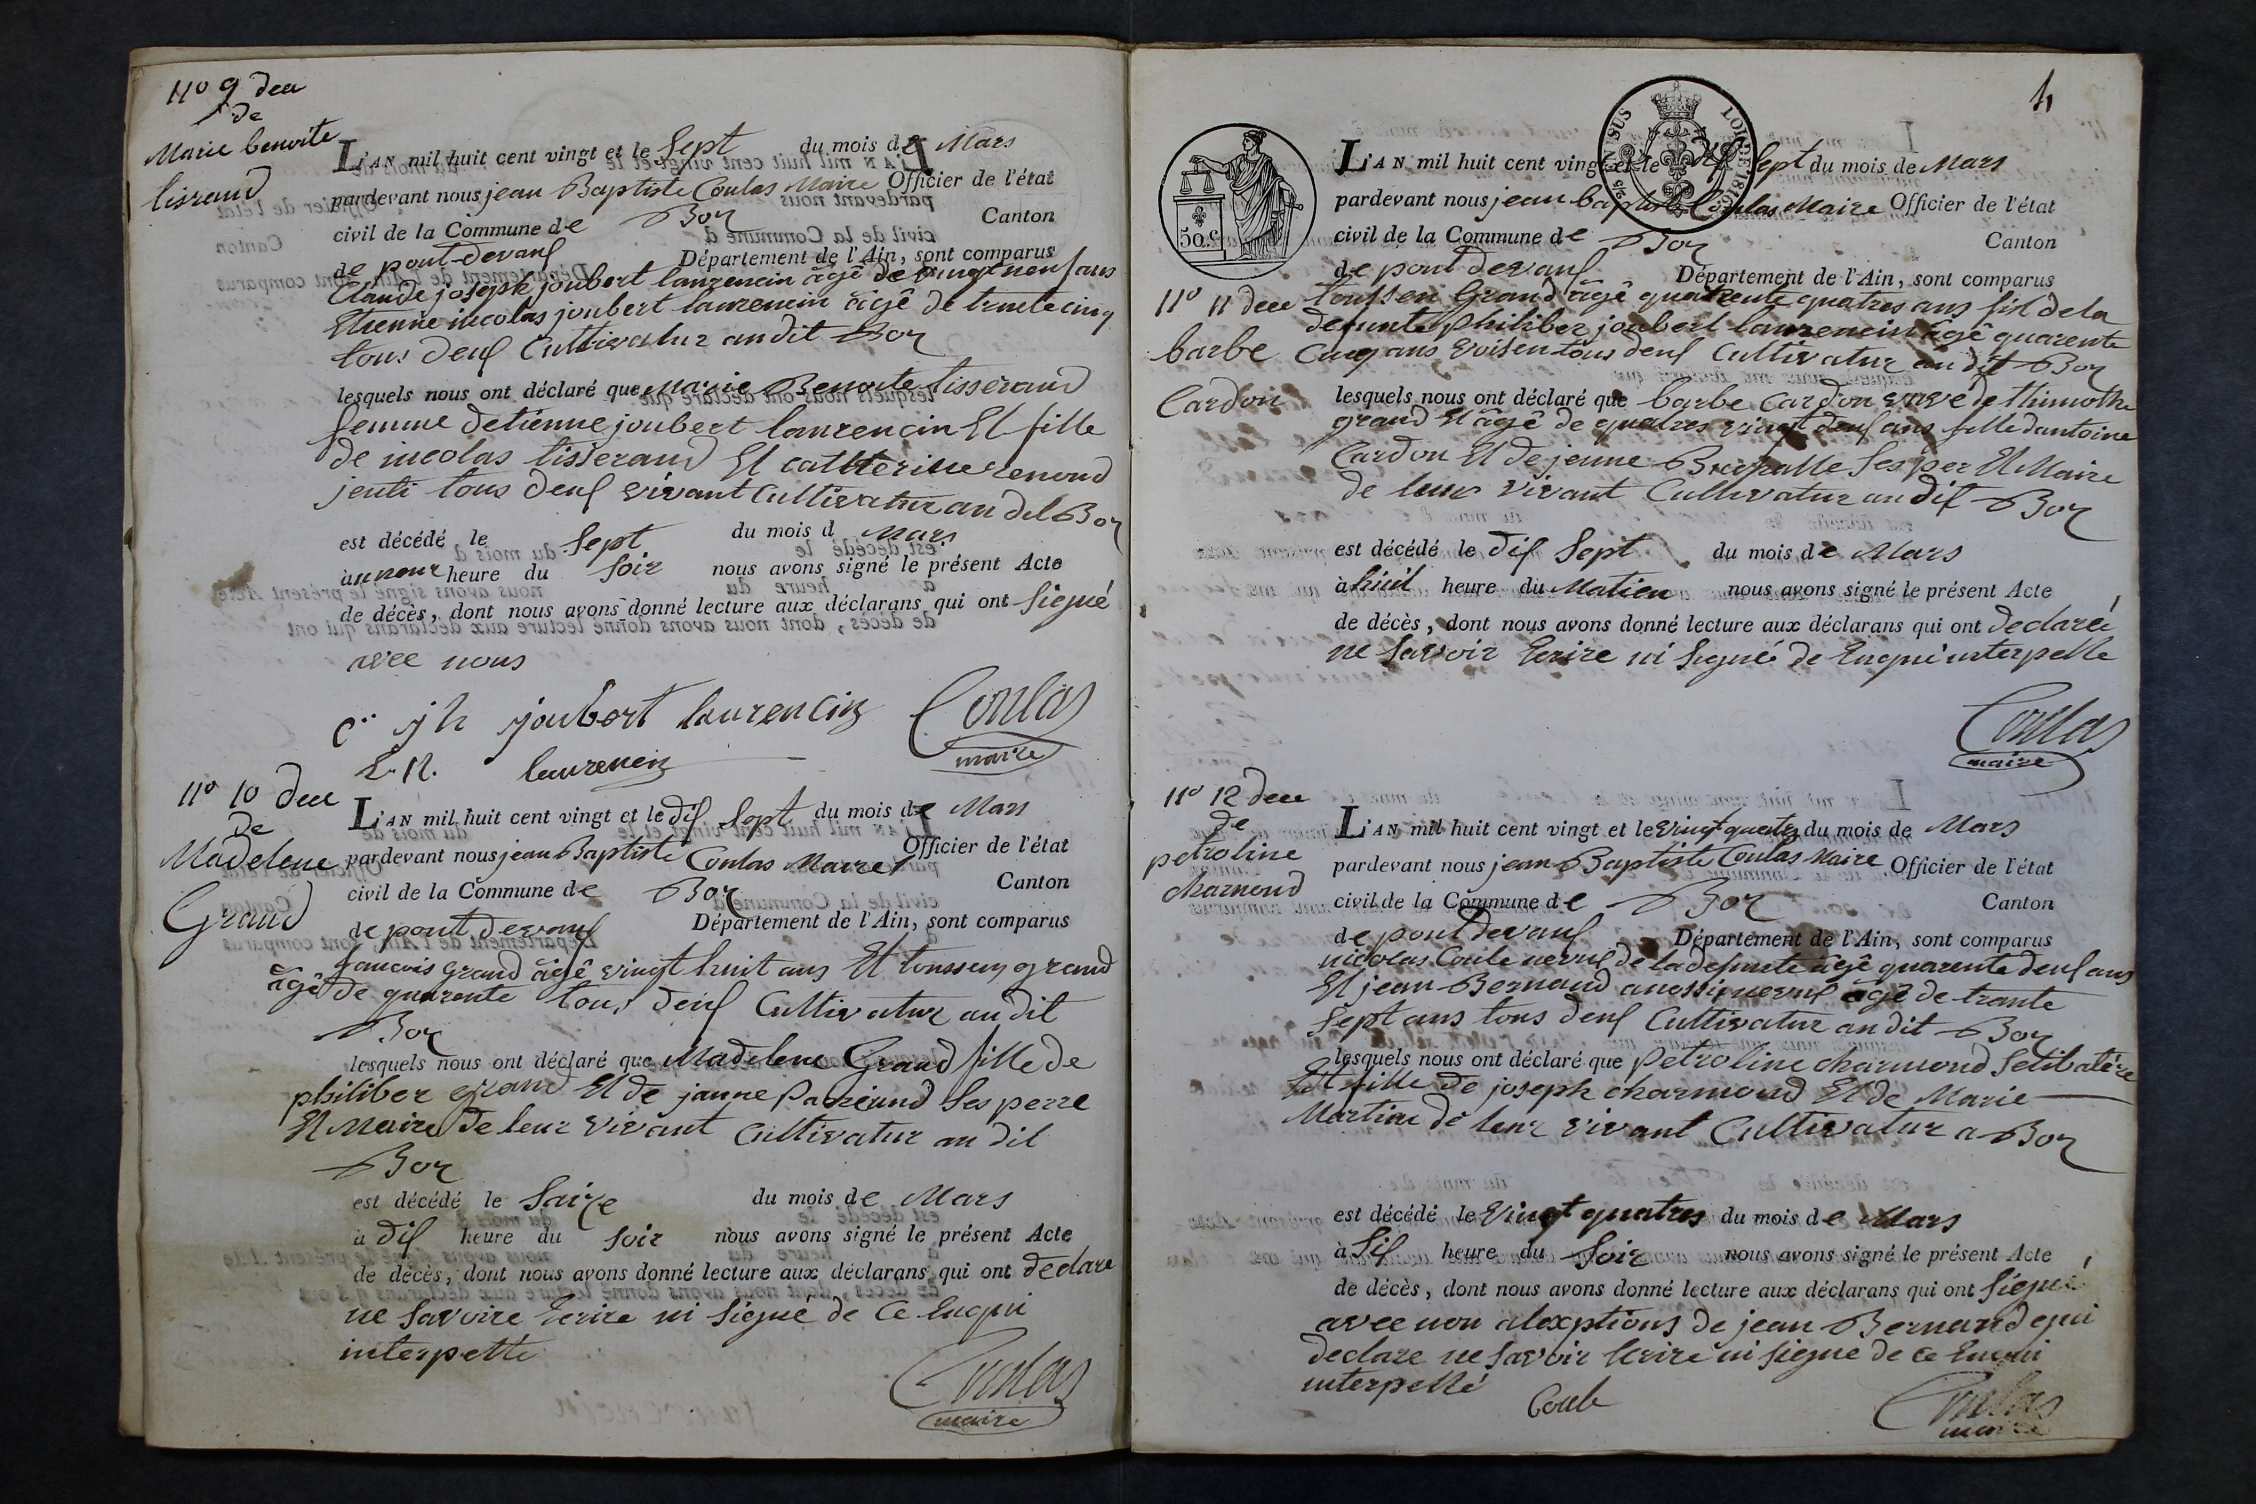 no 9 dece
de
Marie benoite
tisraud
L'AN mil huit cent vingt et le Sept du mois de Mars
pardevant nous jean Baptiste Coulas Maire Officier de l'état
civil de la Commune de Boz Canton
de pont devauf Département de l'Ain, sont comparus
Claude joseph joubert laurencin âgé de vingt neuf ans
Etienne nicolas joubert laurencin âgé de trente cinq
tous deuf Cultivatur au dit Boz
lesquels nous ont déclaré que Marie Benoite tisseraud
femme detienne joubert laurencin Et fille
de nicolas tisseraud Et catherine renoud
jenti tous deuf vivant Cultivatur au dit Boz
est décédé le Sept du mois d Mars
à heure du Soir nous avons signé le présent Acte
de décès, dont nous avons donné lecture aux déclarans qui ont Siegné
avec nous
C. jh joubert laurencin Coulas
maire
E. N. laurencin
no 10 dece
de
Madelene
Grand
L'AN mil huit cent vingt et le dif Sept du mois de Mars
pardevant nous jean Baptiste Coulas Maire Officier de l'état
civil de la Commune de Boz Canton
de pont devauf Département de l'Ain, sont comparus
francois grand âgé vingt huit ans Et toussen grand
âgé de quarente tous deuf Cultivatur au dit
Boz
lesquels nous ont déclaré que Madelene Grand fille de
philiber grand Et de janne Ses perre
Et Maire de leur vivant Cultivatur au dit
Boz
est décédé le Saize du mois de Mars
à dif heure du Soir nous avons signé le présent Acte
de décès, dont nous avons donné lecture aux déclarans qui ont declare
ne Savoire Ecrire ni Siegné de Ce Enqui
interpette
Coulas
maire
4
50 c
LOI DE 1816
L'AN mil huit cent vingt et le dif Sept du mois de Mars
pardevant nous jean baptiste Coulas Maire Officier de l'état
civil de la Commune de Boz Canton
de pont devauf Département de l'Ain, sont comparus
no 11 dece
barbe
Cardon
toussen Grand âgé quarente quatres ans fis de la
defunte philiber joubert laurencin âgé quarente
Cinq ans voisen tous deuf Cultivatur au dit Boz
lesquels nous ont déclaré que barbe Cardon veve de thimothe
grand Et âgé de quatres vingt deuf ans fille dantoine
Cardon Et de jenne Ses per Et Maire
de leur vivant Cultivatur au dit Boz
est décédé le dif Sept du mois de Mars
à huit heure du Matien nous avons signé le présent Acte
de décès, dont nous avons donné lecture aux déclarans qui ont declaré
ne Savoir Ecrire ni Siegné de Enqui interpelle
Coulas
maire
no 12 dece
de
petroline
charnoud
L'AN mil huit cent vingt et le vingt quatres du mois de Mars
pardevant nous jean Baptiste Coulas Maire Officier de l'état
civil de la Commune de Boz Canton
de pont devauf Département de l'Ain, sont comparus
nicolas Coulé neveuf de la defunte âgé quarente deuf ans
Et jean Bernaud aussi neveuf âgé de trante
Sept ans tous deuf Cultivatur au dit Boz
lesquels nous ont déclaré que petroline charnoud Selibatére
Et fille de joseph charnoud Et de Marie
Martine de leur vivant Cultivatur a Boz
est décédé le Vingt quatres du mois de Mars
à Sif heure du Soir nous avons signé le présent Acte
de décès, dont nous avons donné lecture aux déclarans qui ont Siegné
avec nou alexptions de jean Bernaud qui
declare ne Savoir Ecrire ni Siegne de Ce Enqui
interpellé
Coule Coulas
maire